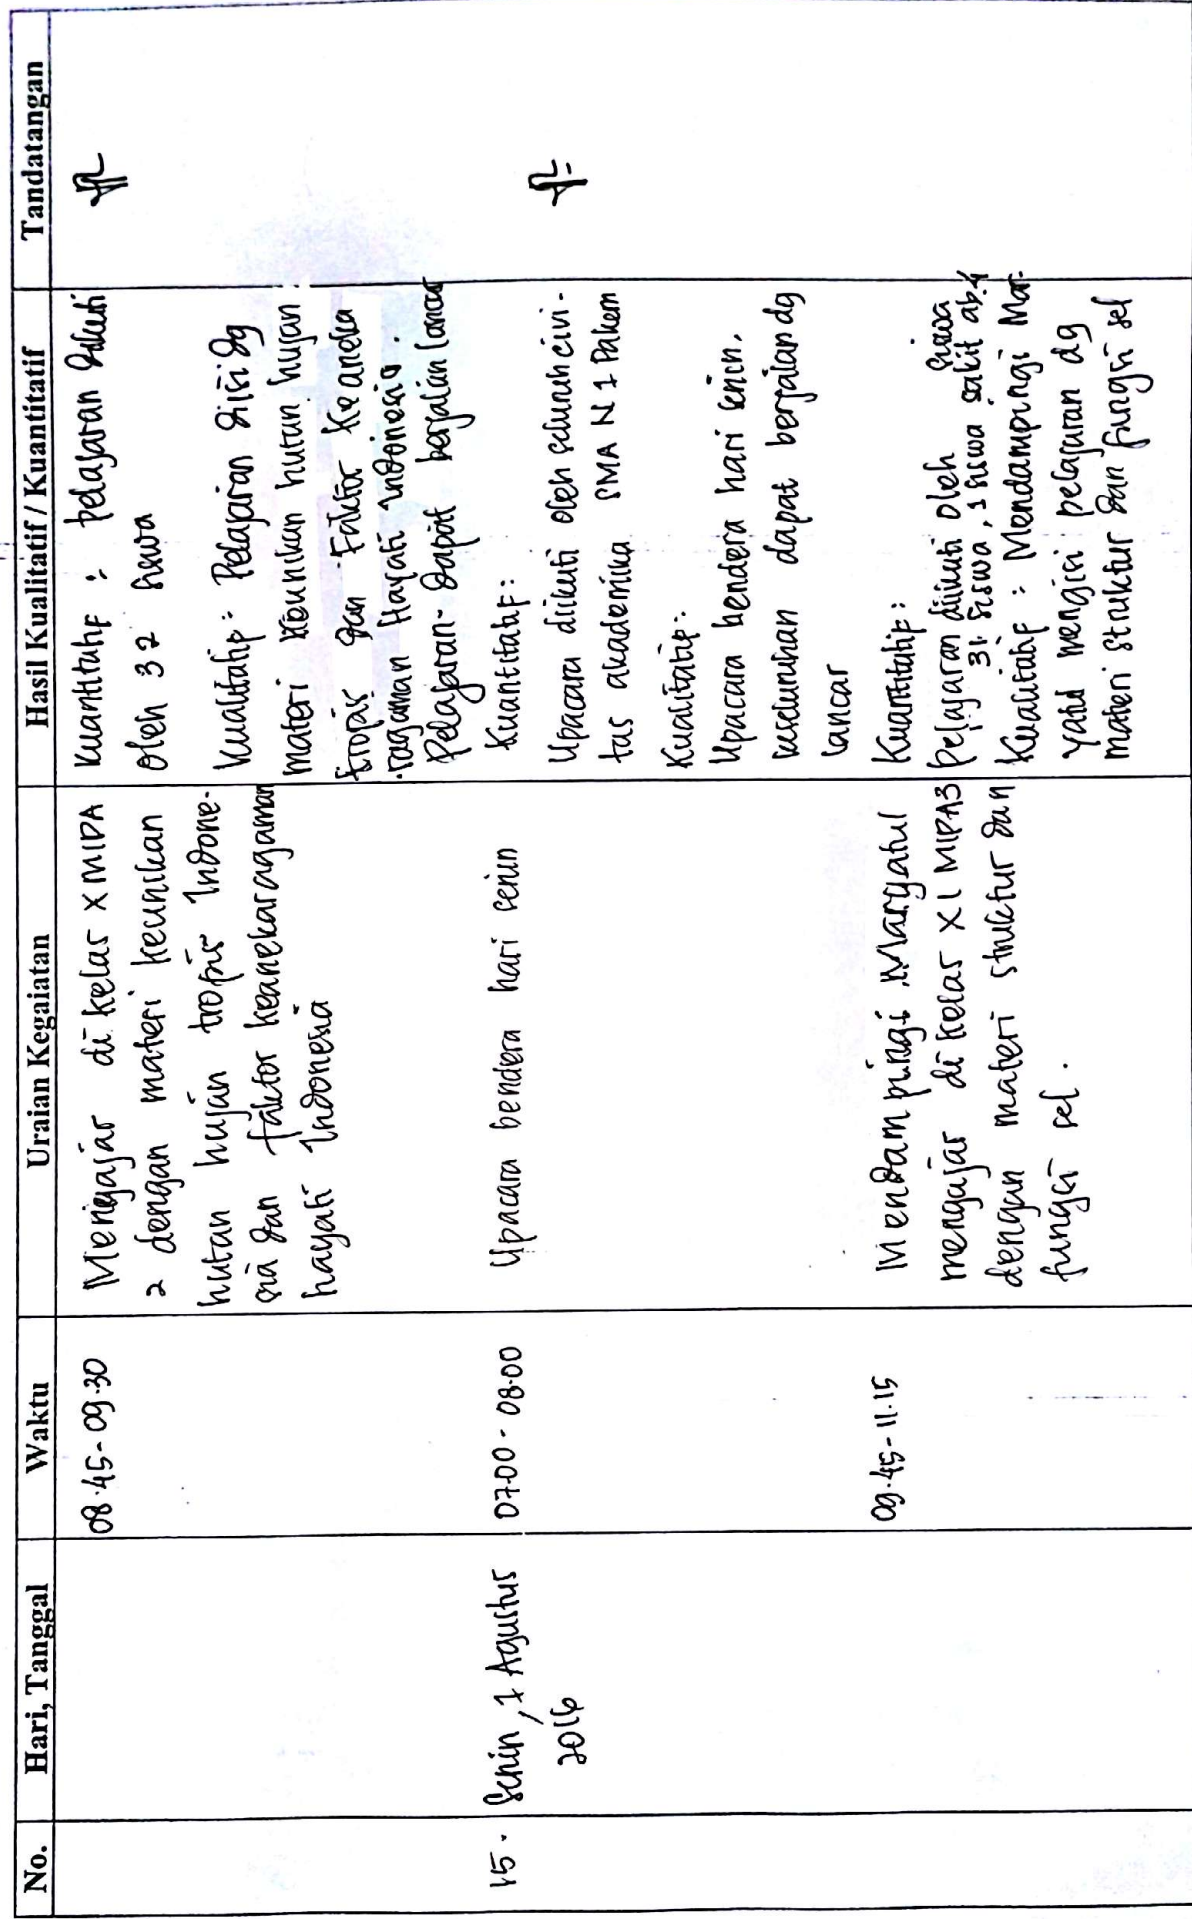 No. Hari, Tanggal Waktu Uraian Kegaiatan Hasil Kualitatif / Kuantitatif Tandatangan
08.45-09.30
Mengajar di kelas X MIPA
2 dengan materi keunikan
hutan hujan tropis Indone-
sia dan faktor keanekaragaman
hayati Indonesia
Kuantitatif : pelajaran diikuti
oleh 32 siswa
Kualitatif : Pelajaran diisi dg
materi keunikan hutan hujan
tropis dan Faktor Keaneka
ragaman Hayati Indonesia.
Pelajaran dapat berjalan lancar
15. Senin, 1 Agustus
2016
07.00 - 08.00
Upacara bendera hari senin
Kuantitatif:
Upacara diikuti oleh seluruh civi-
tas akademika SMA N 1 Pakem
Kualitatif:
Upacara bendera hari senin,
keseluruhan dapat berjalan dg
lancar
09.45-11.15
Mendampingi Maryatul
mengajar di kelas XI MIPA3
dengan materi struktur dan
fungsi sel.
Kuantitatif:
pelajaran diikuti oleh siswa
31 siswa, 1 siswa sakit
Kualitatif : Mendampingi Mar-
yatul mengisi pelajaran dg
materi struktur dan fungsi sel